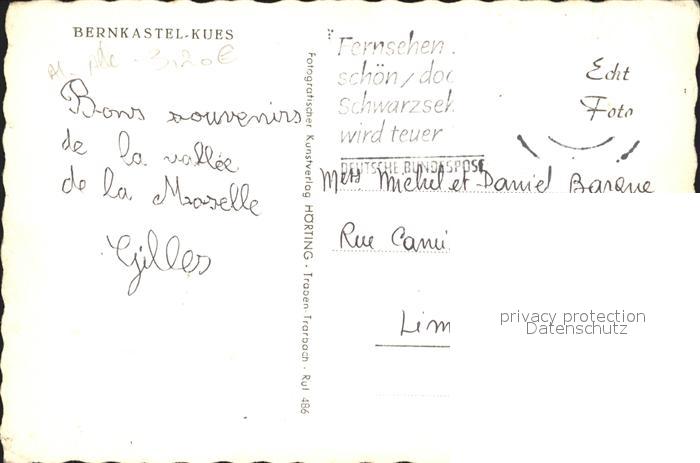 BERNKASTEL-KUES
3,20 €
Bons souvenirs
de la vallée
de la Moselle
Gilles
Fotografischer Kunstverlag HÖRTING · Traben-Trarbach · Ruf 486
Fernsehen
schön, doc
Schwarzseh
wird teuer
DEUTSCHE BUNDESPOST
Echt
Foto
Michel et Daniel
Rue Cami
Lim
privacy protection
Datenschutz